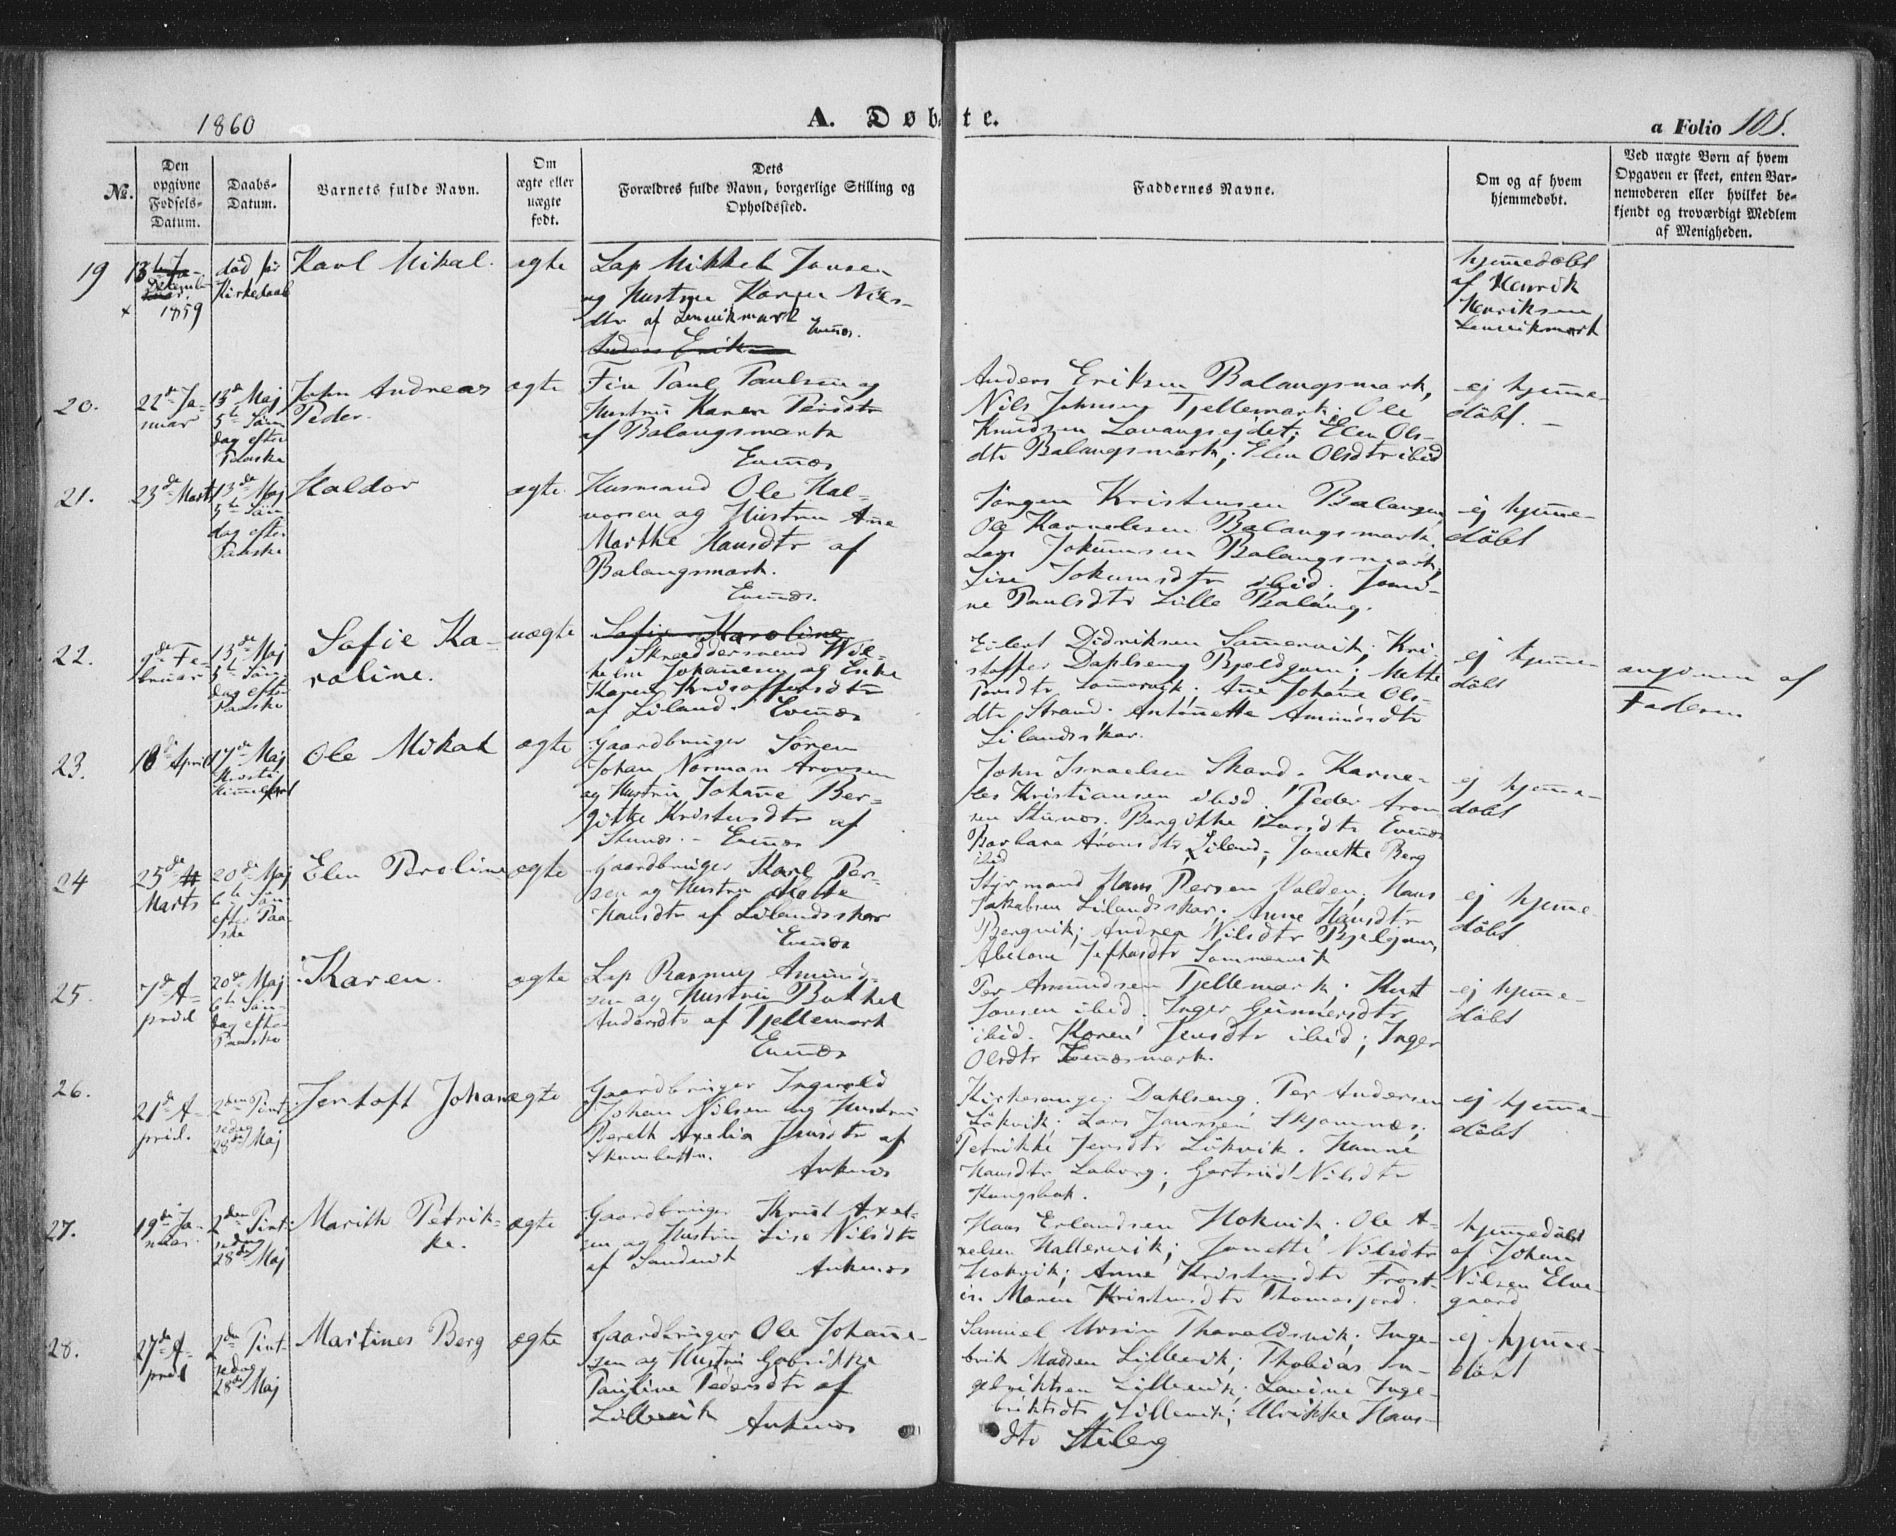 1860
A. Døbte.
a Folio 101.
No.
Den opgivne Fødsels-Datum.
Daabs-Datum.
Barnets fulde Navn.
Om ægte eller uægte født.
Dets Forældres fulde Navn, borgerlige Stilling og Opholdssted.
Faddernes Navne.
Om og af hvem hjemmedøbt.
Ved uægte Børn af hvem Opgaven er skeet, enten Barnemoderen eller hvilket bekjendt og troværdigt Medlem af Menigheden.
19
1859
død før
Kirkedaab
Karl Mikal.
ægte
Lap Mikkel Jansen
og Hustru Karen Nils-
dtr af Lenvikmark
Evenæs.
hjemmedøbt
af Henrik
Henriksen
Lenvikmark
20.
22de Ja-
nuar
13de Maj
5te Søn-
dag efter
Paaske
John Andreas
Peder.
ægte
Fin Paul Paulsen og
Hustru Karen Persdtr
af Balangsmark
Evenæs
Anders Eriksen Balangsmark,
Nils Johnsen Tjellemark; Ole
Knudsen Lavangsejdet; Elen Ols-
dtr Balangsmark; Elen Olsdtr ibid
ej hjemme-
døbt.
21.
23de Marts
13de Maj
5te Søn-
dag efter
Paaske
Haldor
ægte
Husmand Ole Hal-
vorsen og Hustru Ane
Marthe Hansdtr af
Balangsmark.
Evenæs.
Jørgen Kristensen Balangen
Ole Karnelesen Balangsmark.
Lars Jokumsen Balangsmark;
Lise Jokumsdtr ibid; Jen-
ne Paulsdtr Lille Balang.
ej hjemme-
døbt
22.
9de Fe-
bruar
13de Maj
5te Søn-
dag efter
Paaske
Sofie Ka-
roline.
uægte
Sofie Karoline
Skræddersvend Wil-
helm Johannesen og Enke
Karen Kristoffersdtr
af Liland. Evenæs
Edert Didriksen Sammervik; Kri-
stoffer Dahlseng Bjeldgam; Mette
Sammervik; Ane Johanne Ols-
dtr Strand. Antonette Amundsdtr
Lilandsskar.
ej hjemme
døbt
angiven af
Faderen
23.
18de April
17de Maj
Kristi
Himmelfart
Ole Mikal
ægte
Gaardbruger Søren
Johan Norman Aronsen
og Hustru Johanne Ber-
gitte Kristensdtr af
Stunes. Evenæs
John Israelsen Strand. Karne-
les Kristiansen ibid. Peder Aron-
sen Stunes. Bergitte Larsdtr Evenæs
Barbara Aronsdtr Liland; Janette Berg
ibid
ej hjemme-
døbt
24
25de
Marts
20de Maj
6te Søn
efter Paa-
ske
Elen Peroline
ægte
Gaardbruger Karl Per-
sen og Hustru Mette
Hansdtr af Lilandsskar
Evenæs
Styrmand Hans Persen Valden; Hans
Jakobsen Lilandsskar; Anne Hansdtr
Bergvik; Andrea Nilsdtr Bjelgam,
Abelone Jeftasdtr Sommervik
ej hjemme
døbt
25.
7de A-
pril
20de Maj
6te Søn-
dag efter
Paaske
Karen.
ægte
Lap Rasmus Amund-
sen og Hustru Bakhel
Andersdtr af Tjellemark
Evenæs
Per Amundsen Tjellemark; Knut
Jonsen ibid. Inger Gunnersdtr
ibid. Karen Jensdtr ibid; Inger
Olsdtr Evenæsmark.
ej hjemme-
døbt
26.
21de A-
pril.
2den Pint-
sedag
28de Maj
Jentoft Johan
ægte
Gaardbruger Ingvald
Johan Nilsen og Hustru
Bereth Axelia Jensdtr af
Ankenes
Kirkesanger Dahlseng. Per Andersen
Løkvik; Lars Jansen Skjomnæs;
Petrikke Jensdtr Løkvik. Hanne
Hansdtr Laberg; Gertrud Nilsdtr
Kongsbak.
ej hjemme-
døbt
27.
19de Ja-
nuar
2den Pint-
sedag
28de Maj
Marith Petrik-
ke.
ægte
Gaardbruger Knut Axel-
sen og Hustru Lise Nilsdtr
af Sandvik
Ankenes
Hans Erlandsen Hokvik. Ole A-
xelsen Hallervik; Janette Nilsdtr
Hokvik; Anne Kristensdtr Frost-
is. Maren Kristensdtr Thomasjord.
hjemmedøbt
af Johan
Nilsen Elve-
gaard
28.
27de A-
pril
2den Pint-
sedag
28de Maj
Martines Berg
ægte
Gaardbruger Ole Johanne-
sen og Hustru Gabrikke
Pauline Pedersdtr af
Lillevik Ankenes
Samuel Ursin Tharaldsvik; Inge-
brik Madsen Lillevik; Thobias In-
gebriktsen Lillevik; Lavine Inge-
briktsdtr Lillevik; Ulrikke Hans-
dtr Stiberg
ej hjemme-
døbt